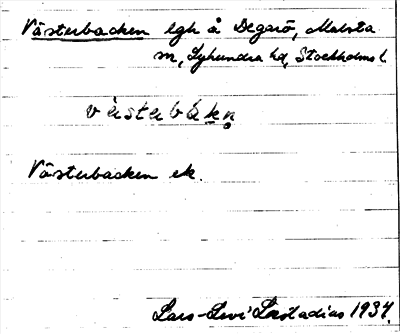 Västerbacken lgh å Degerö, Malsta
sn, Lyhundra hd, Stockholms l.
vàsterbákn̥
Västerbacken ek.
Lars-Levi Læstadius 1934.